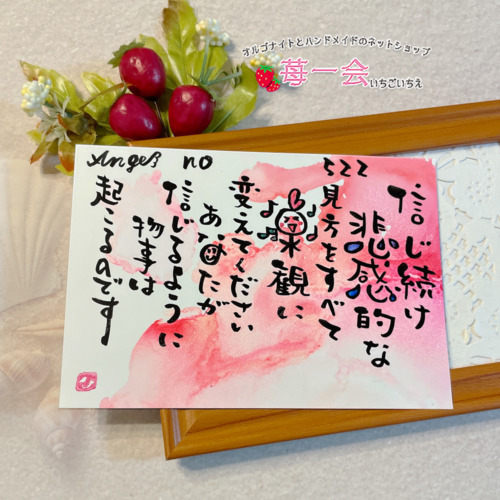 オルゴナイトとハンドメイドのネットショップ
苺一会
いちごいちえ
Angel no
522
信じ続け
悲感的な
見方をすべて
楽観に
変えてください
あなたが
信じるように
物事は
起こるのです